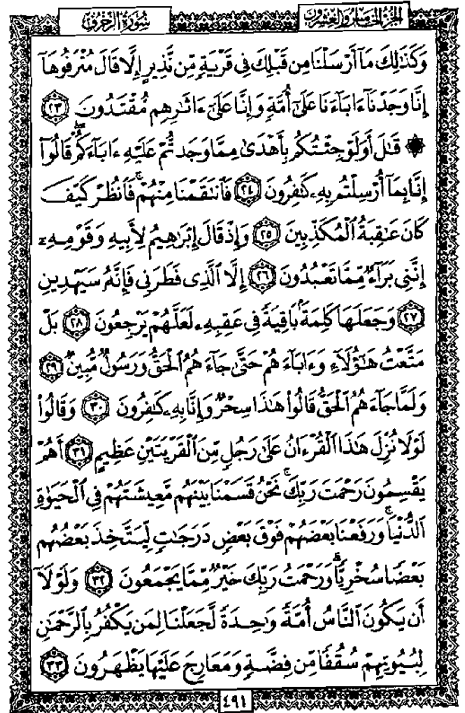 الجزء الخامس والعشرون
سورة الزخرف
وَكَذَٰلِكَ مَآ أَرْسَلْنَا مِن قَبْلِكَ فِى قَرْيَةٍ مِّن نَّذِيرٍ إِلَّا قَالَ مُتْرَفُوهَآ
إِنَّا وَجَدْنَآ ءَابَآءَنَا عَلَىٰٓ أُمَّةٍ وَإِنَّا عَلَىٰٓ ءَاثَٰرِهِم مُّقْتَدُونَ ٢٣
۞ قَٰلَ أَوَلَوْ جِئْتُكُم بِأَهْدَىٰ مِمَّا وَجَدتُّمْ عَلَيْهِ ءَابَآءَكُمْ ۖ قَالُوٓا۟
إِنَّا بِمَآ أُرْسِلْتُم بِهِۦ كَٰفِرُونَ ٢٤ فَٱنتَقَمْنَا مِنْهُمْ ۖ فَٱنظُرْ كَيْفَ
كَانَ عَٰقِبَةُ ٱلْمُكَذِّبِينَ ٢٥ وَإِذْ قَالَ إِبْرَٰهِيمُ لِأَبِيهِ وَقَوْمِهِۦٓ
إِنَّنِى بَرَآءٌ مِّمَّا تَعْبُدُونَ ٢٦ إِلَّا ٱلَّذِى فَطَرَنِى فَإِنَّهُۥ سَيَهْدِينِ
٢٧ وَجَعَلَهَا كَلِمَةًۢ بَاقِيَةً فِى عَقِبِهِۦ لَعَلَّهُمْ يَرْجِعُونَ ٢٨ بَلْ
مَتَّعْتُ هَٰٓؤُلَآءِ وَءَابَآءَهُمْ حَتَّىٰ جَآءَهُمُ ٱلْحَقُّ وَرَسُولٌ مُّبِينٌ ٢٩
وَلَمَّا جَآءَهُمُ ٱلْحَقُّ قَالُوا۟ هَٰذَا سِحْرٌ وَإِنَّا بِهِۦ كَٰفِرُونَ ٣٠ وَقَالُوا۟
لَوْلَا نُزِّلَ هَٰذَا ٱلْقُرْءَانُ عَلَىٰ رَجُلٍ مِّنَ ٱلْقَرْيَتَيْنِ عَظِيمٍ ٣١ أَهُمْ
يَقْسِمُونَ رَحْمَتَ رَبِّكَ ۚ نَحْنُ قَسَمْنَا بَيْنَهُم مَّعِيشَتَهُمْ فِى ٱلْحَيَوٰةِ
ٱلدُّنْيَا ۚ وَرَفَعْنَا بَعْضَهُمْ فَوْقَ بَعْضٍ دَرَجَٰتٍ لِّيَتَّخِذَ بَعْضُهُم
بَعْضًا سُخْرِيًّا ۗ وَرَحْمَتُ رَبِّكَ خَيْرٌ مِّمَّا يَجْمَعُونَ ٣٢ وَلَوْلَآ
أَن يَكُونَ ٱلنَّاسُ أُمَّةً وَٰحِدَةً لَّجَعَلْنَا لِمَن يَكْفُرُ بِٱلرَّحْمَٰنِ
لِبُيُوتِهِمْ سُقُفًا مِّن فِضَّةٍ وَمَعَارِجَ عَلَيْهَا يَظْهَرُونَ ٣٣
٤٩١